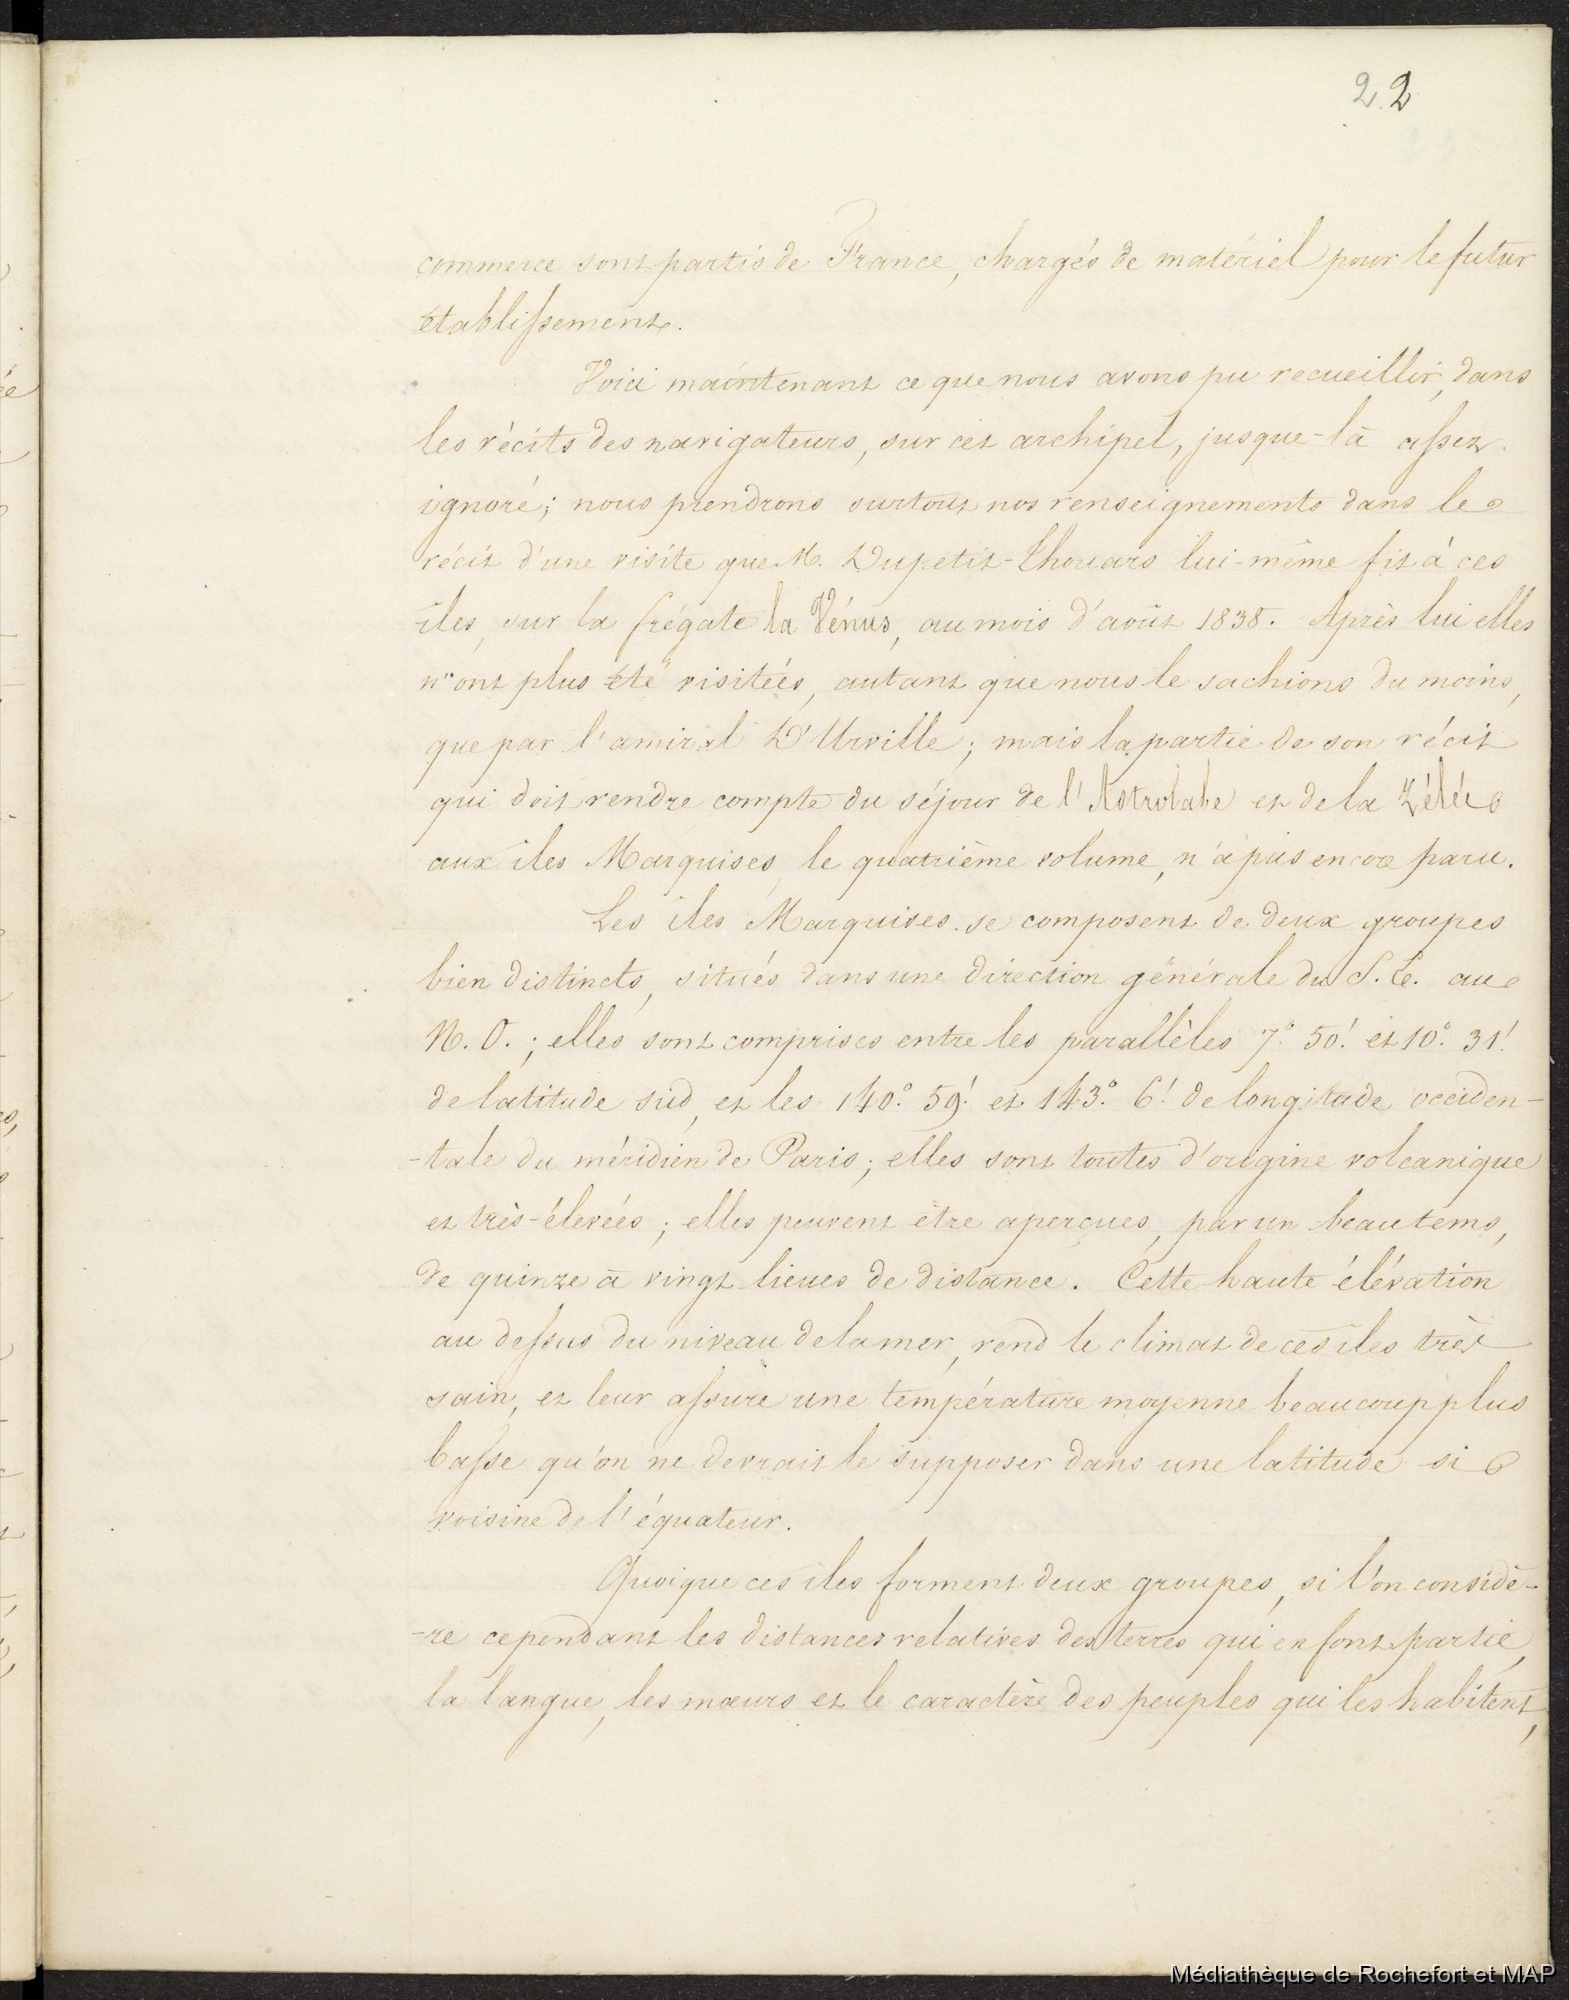 22
commerce sont partis de France, chargés de matériel pour le futur
établissement.
Voici maintenant ce que nous avons pu recueillir, dans
les récits des navigateurs, sur cet archipel, jusque-là assez
ignoré; nous prendrons surtout nos renseignements dans le
récit d'une visite que M. Dupetit-Thouars lui-même fit à ces
îles, sur la frégate la Vénus, au mois d'août 1838. Après lui elles
n'ont plus été visitées, autant que nous le sachions du moins,
que par l'amiral D'Urville; mais la partie de son récit
qui doit rendre compte du séjour de l'Astrolabe et de la Zélée
aux îles Marquises, le quatrième volume, n'a pas encore paru.
Les îles Marquises se composent de deux groupes
bien distincts, situés dans une direction générale du S. E. au
N. O. ; elles sont comprises entre les parallèles 7° 50' et 10° 31'
de latitude sud, et les 140° 59' et 143° 6' de longitude occiden-
-tale du méridien de Paris; elles sont toutes d'origine volcanique
et très-élevées ; elles peuvent être aperçues, par un beau tems,
de quinze à vingt lieues de distance. Cette haute élévation
au dessus du niveau de la mer, rend le climat de ces îles très
sain, et leur assure une température moyenne beaucoup plus
basse qu'on ne devrait le supposer dans une latitude si
voisine de l'équateur.
Quoique ces îles forment deux groupes, si l'on considè-
-re cependant les distances relatives des terres qui en font partie,
la langue, les mœurs et le caractère des peuples qui les habitent,
Médiathèque de Rochefort et MAP